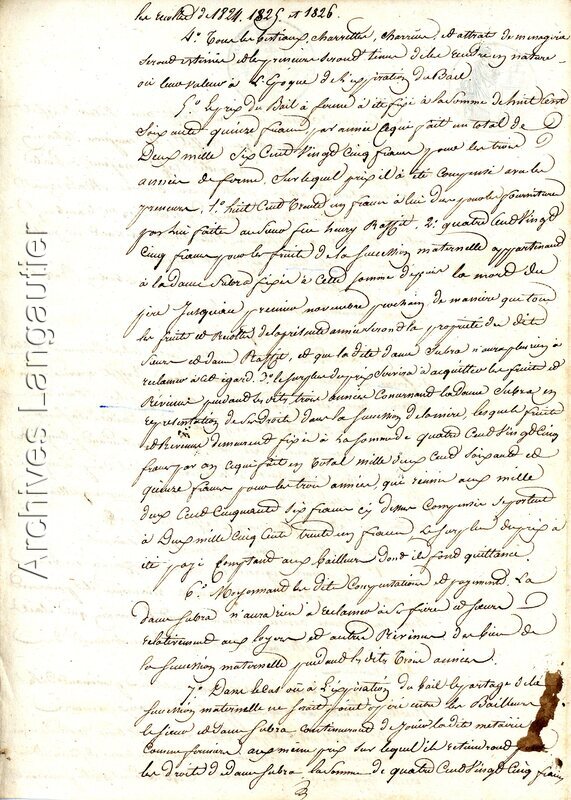 les recoltes de 1824, 1825 et 1826.
4.° Tous les bestiaux, charrettes, charrue et attrat de menagerie
seront estimés et les preneurs seront tenus de les rendre en nature
où leur valeur à L'Epoque de L'expiration du Bail.
5.° Le prix du Bail à ferme à été fixé à la somme de huit Cent
Soixante quinze francs par année ce qui fait un total de
Deux mille Six Cent Vingt Cinq francs pour les trois
années de ferme. Sur lequel prix il à été compensé avec les
preneurs, 1.° huit Cent trente un francs à lui dus pour les fournitures
par lui faites au Sieur feu henry Raffit. 2.° quatre Cent Vingt
Cinq francs pour les fruits de la Succession maternelle appartenant
à la dame Subra fixés à Cette Somme depuis la mort du
père Jusqu'au premier novembre prochain de manière que tous
les fruits et Recoltes de la presente année seront la propriété des dits
Sieurs et dame Raffit, et que la dite dame Subra n'aura plus rien à
reclamer à cet egard. 3.° le surplus du prix servira à acquitter les fruits et
Revenus pendant les dites trois années Concernant la Dame Subra en
représentation de ses Droits dans la Succession de la mère, lesquels fruits
et Revenus demeurent fixés à La Somme de quatre Cent Vingt Cinq
francs par an ce qui fait en total mille deux Cent soixante et
quinze francs pour les trois années, qui reunis aux mille
deux Cent Cinquante Six francs cy dessus Compensés se portent
à Deux mille Cinq Cents trente un francs. Le surplus du prix à
été payé Comptant aux Bailleurs dont ils font quittance.
6.° Moyennant les dites Compensations et payement La
Dame Subra n'aura rien à reclamer à Ses frères et Soeurs
relativement aux loyers et autres Revenus des biens de
la Succession maternelle pendant les dites Trois années.
7.° Dans le Cas où à L'expiration du bail le partage de la
Succession maternelle ne serait point opéré entre les Bailleurs
le Sieur et Dame Subra continueront de Jouir la dite metairie
Comme fermiers, aux même prix sur lequel ils retiendront
les droits de dame Subra la Somme de quatre Cent Vingt Cinq francs
3
Archives Langautier